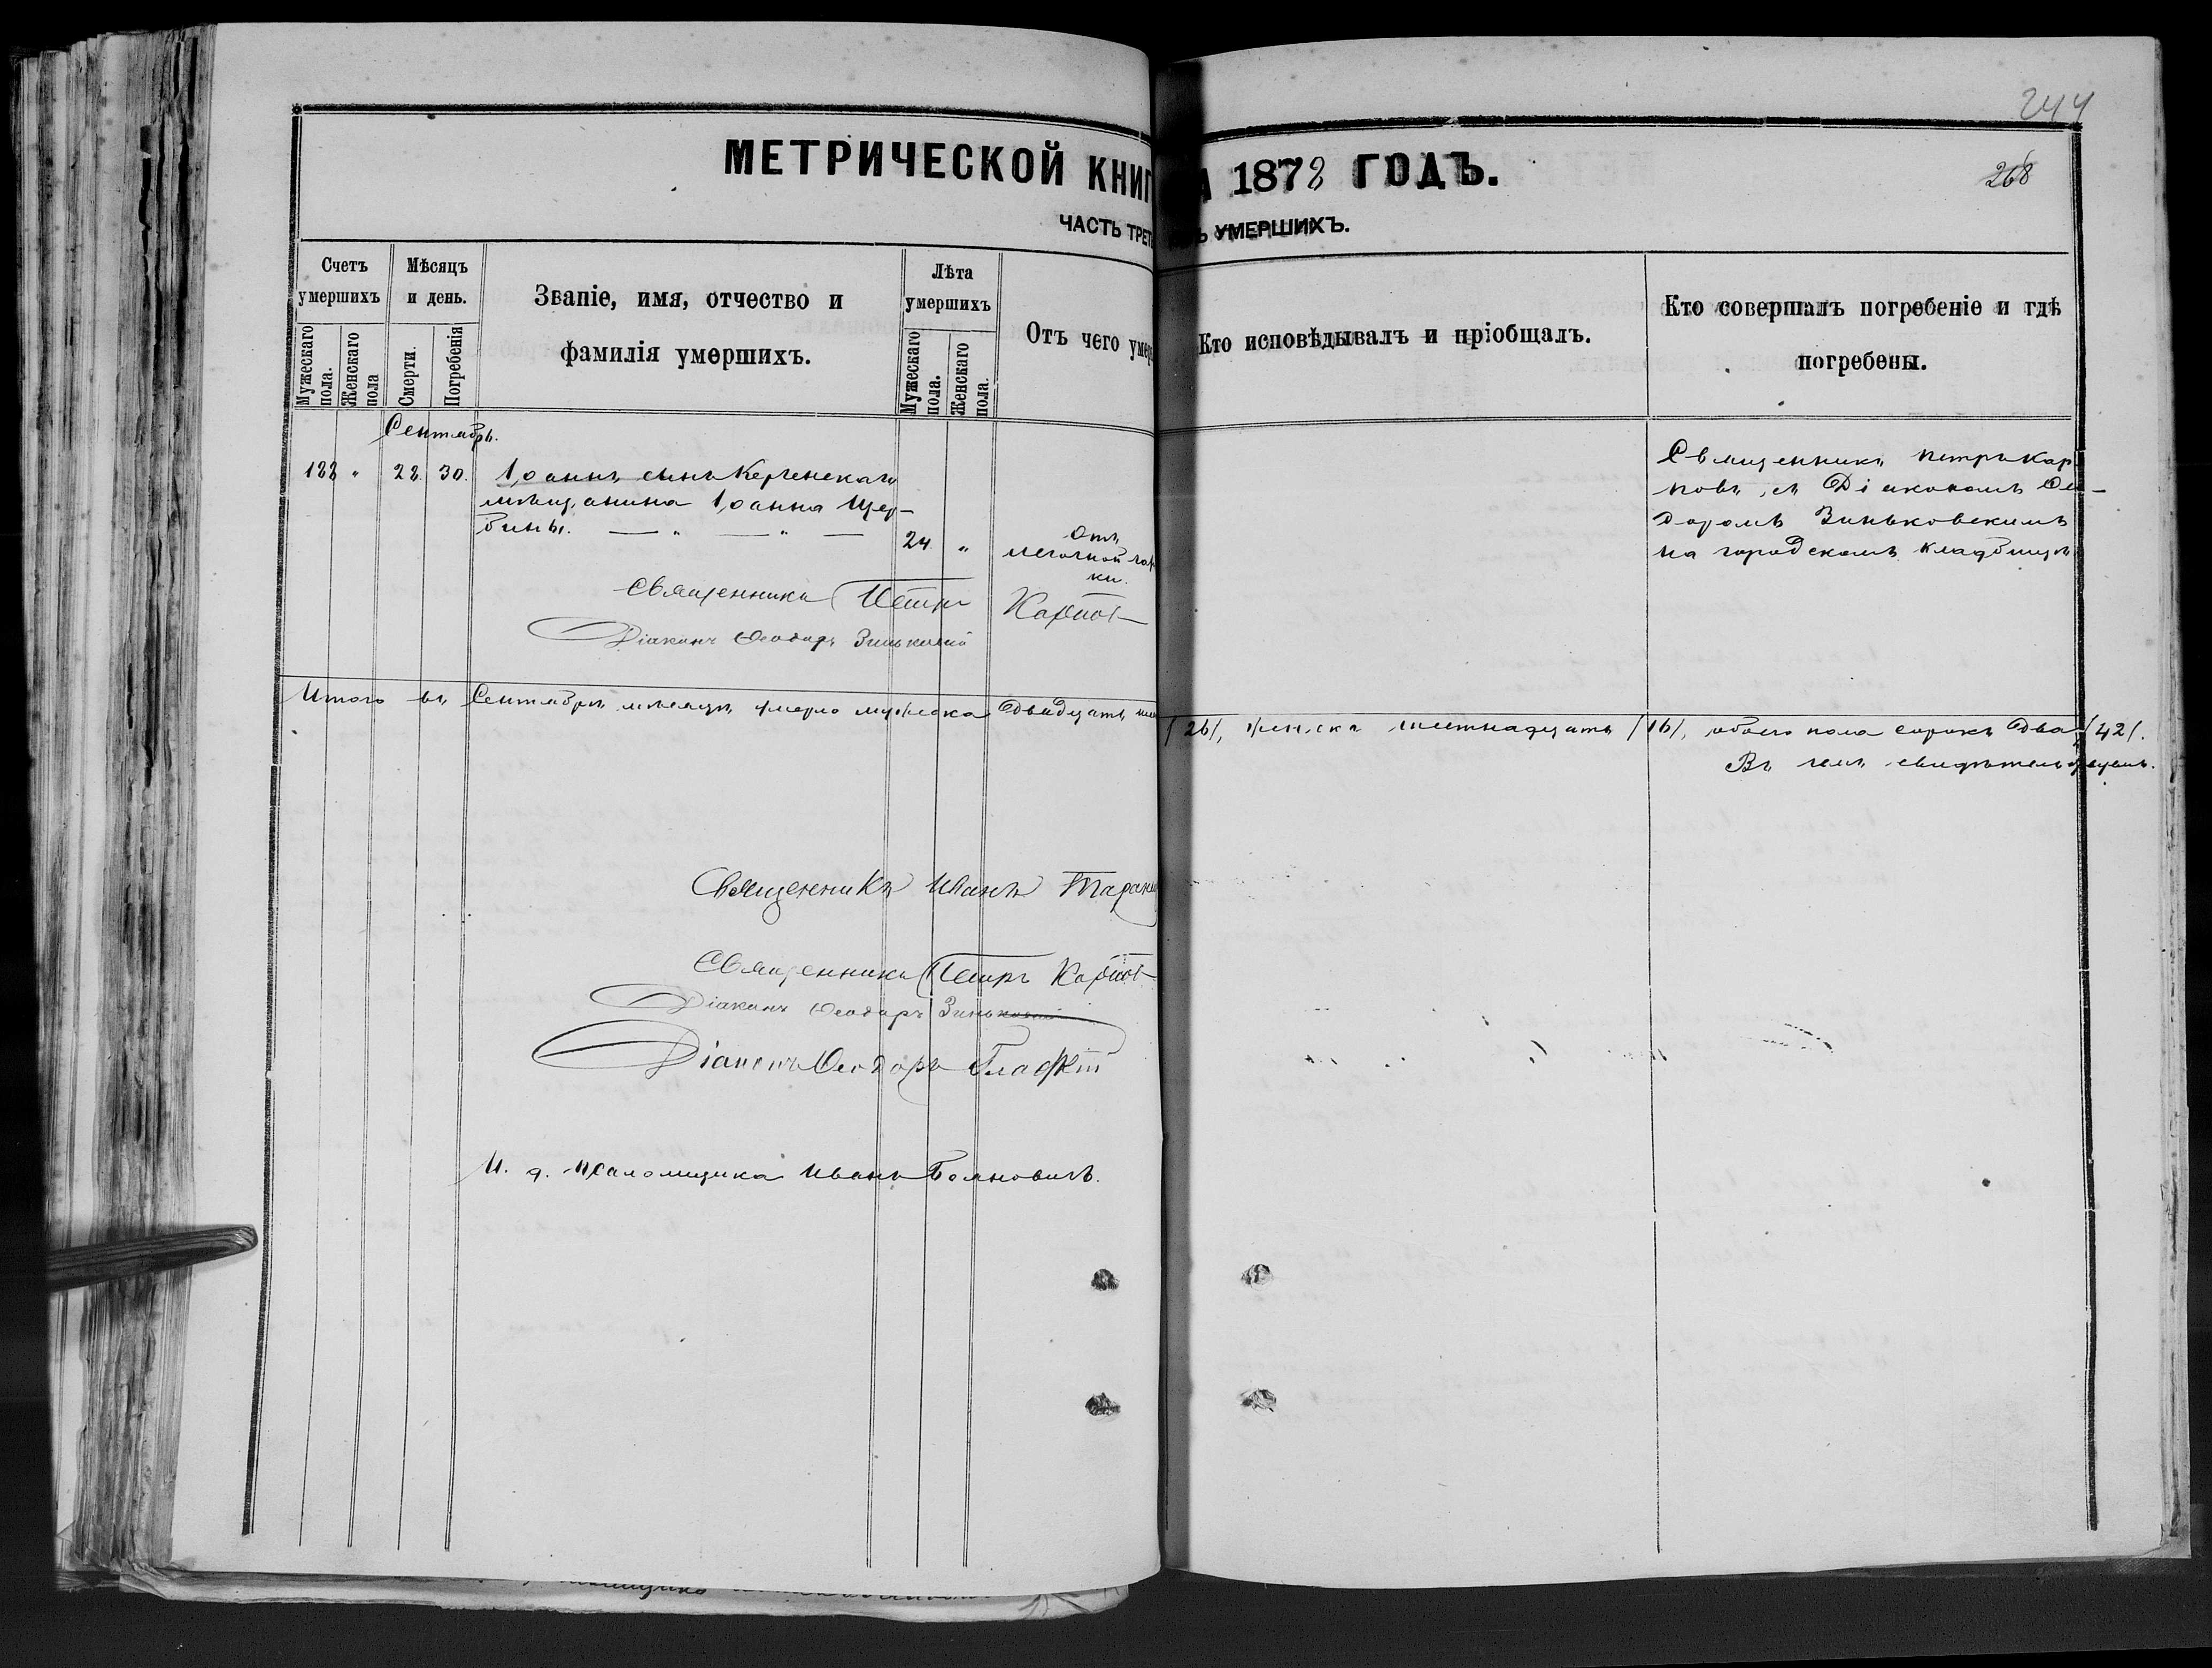 244
268
МЕТРИЧЕСКОЙ КНИГ А 1878 ГОДЪ.
ЧАСТЬ ТРЕТ Ъ УМЕРШИХЪ.
Счетъ умершихъ
Мужескаго пола.
Женскаго пола
Мѣсяцъ и день.
Смерти.
Погребенія
Званіе, имя, отчество и
фамилія умершихъ.
Лѣта умершихъ
Мужескаго пола.
Женскаго пола.
Отъ чего умер
Кто исповѣдывалъ и пріобщалъ.
Кто совершалъ погребеніе и гдѣ
погребены.
Сентябрь.
188 " 28. 30. Іоаннъ сынъ Керченскаго
мѣщанина Іоанна Щер-
бины. — " — " —
24 "
Отъ
легочной чах
ки.
Священникъ Петръ Кар
повъ, съ Діакономъ Ѳе-
доромъ Зиньковскимъ
на городскомъ кладбищѣ
Священникъ Петръ Карпов
Діаконъ Ѳеодоръ Зиньковскій
Итого въ Сентябрѣ мѣсяцѣ умерло мужеска двадцать ше
/26/, женска шестнадцать /16/, обоего пола сорокъ два /42/.
Въ чемъ свидѣтельствуемъ.
Священникъ Иванъ
Священникъ Петръ Карпов
Діаконъ Ѳеодоръ Зиньковскій
Діаконъ Ѳеодоръ
И. д. псаломщика Иванъ Бояновичъ.